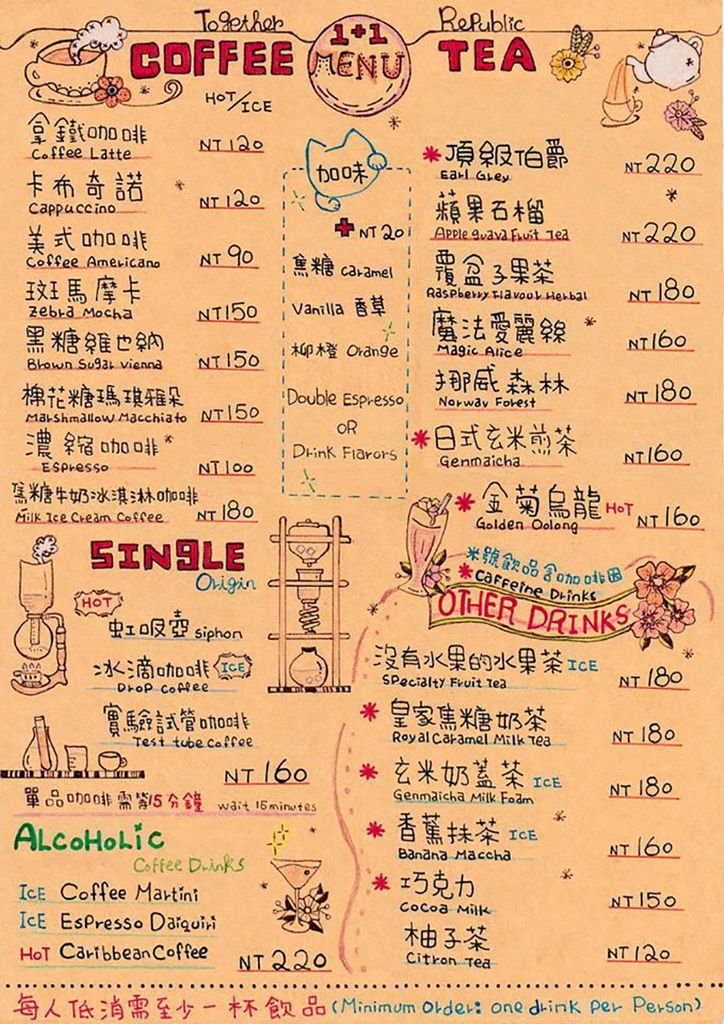 Together
Republic
COFFEE
1+1
MENU
TEA
HOT/ICE
拿鐵咖啡
Coffee Latte
NT 120
卡布奇諾
Cappuccino
NT 120
美式咖啡
Coffee Americano
NT 90
斑馬摩卡
Zebra Mocha
NT150
黑糖維也納
Brown Sugar Vienna
NT150
棉花糖瑪琪雅朵
Marshmallow Macchiato
NT150
濃縮咖啡*
Espresso
NT100
焦糖牛奶冰淇淋咖啡
Milk Ice Cream Coffee
NT 180
加味
+ NT 20
焦糖 Caramel
Vanilla 香草
柳橙 Orange
Double Espresso
OR
Drink Flavors
*頂級伯爵
Earl Grey
NT 220
蘋果石榴
Apple guava Fruit Tea
NT 220
覆盆子果茶
Raspberry Flavour Herbal
NT 180
魔法愛麗絲
Magic Alice
NT160
挪威森林
Norway Forest
NT 180
*日式玄米煎茶
Genmaicha
NT160
*金菊烏龍 HOT
Golden Oolong
NT 160
SINGLE
Origin
HOT
虹吸壺 Siphon
冰滴咖啡 ICE
Drop Coffee
實驗試管咖啡
Test tube Coffee
NT 160
單品咖啡需等15分鐘 wait 15minutes
ALCOHOLIC
Coffee Drinks
ICE Coffee Martini
ICE Espresso Daiquiri
HOT Caribbean Coffee
NT 220
米號飲品含咖啡因
*Caffeine Drinks
OTHER DRINKS
沒有水果的水果茶 ICE
Specialty Fruit Tea
NT 180
*皇家焦糖奶茶
Royal Caramel Milk Tea
NT 180
*玄米奶蓋茶 ICE
Genmaicha Milk Foam
NT 180
*香蕉抹茶 ICE
Banana Maccha
NT 160
*巧克力
Cocoa Milk
NT 150
柚子茶
Citron Tea
NT 120
每人低消需至少一杯飲品 (Minimum Order: one drink Per Person)